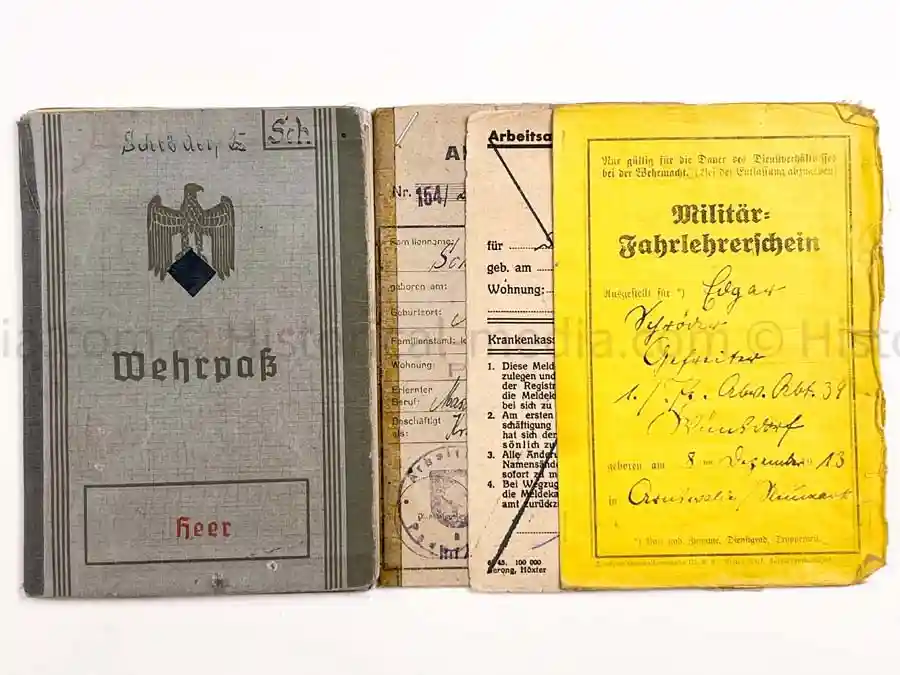 Schröder, E
Sch.
Wehrpaß
Heer
Nr. 154/
Familienname:
Sch
geboren am:
Geburtsort:
Familienstand:
Wohnung:
Erlernter
Beruf:
Beschäftigt
als:
Arbeitsa
für
geb. am
Wohnung:
Krankenkass
1. Diese Meld
zulegen und
der Registr
die Meldek
bei sich zu
2. Am ersten
schäftigung
hat sich der
sönlich zu
3. Alle Änder
Namensänd
sofort zu m
4. Bei Wegzug
die Meldeka
amt zurückz
45. 100 000
Höxter
Nur gültig für die Dauer des Dienstverhältnisses
bei der Wehrmacht. (Bei der Entlassung abzugeben)
Militär-
Fahrlehrerschein
Ausgestellt für *) Edgar
Schröder
Gefreiter
Abt. 39
Wünsdorf
geboren am 8 ten Dezember 19 13
in Arnswalde/Neumark
*) Vor- und Zuname, Dienstgrad, Truppenteil.
© Historical-media.com © Histo